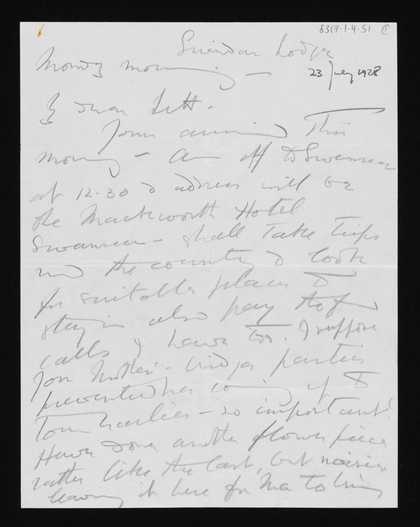 8317.1.4.51
Swindon Lodge
Monday morning —
23 July 1928
My dear
Yours arrived This
morning — am off to Swansea
at 12.30 & address will be
The Mackworth Hotel
Swansea — shall Take Trips
into the country & look
for suitable places to
stay in also pay
calls I have to. I suppose
your Mother's bridge parties
prevented her coming up to
Town earlier — so important!
Have done another flower piece
rather like the last, but
leaving it here for Ma to bring